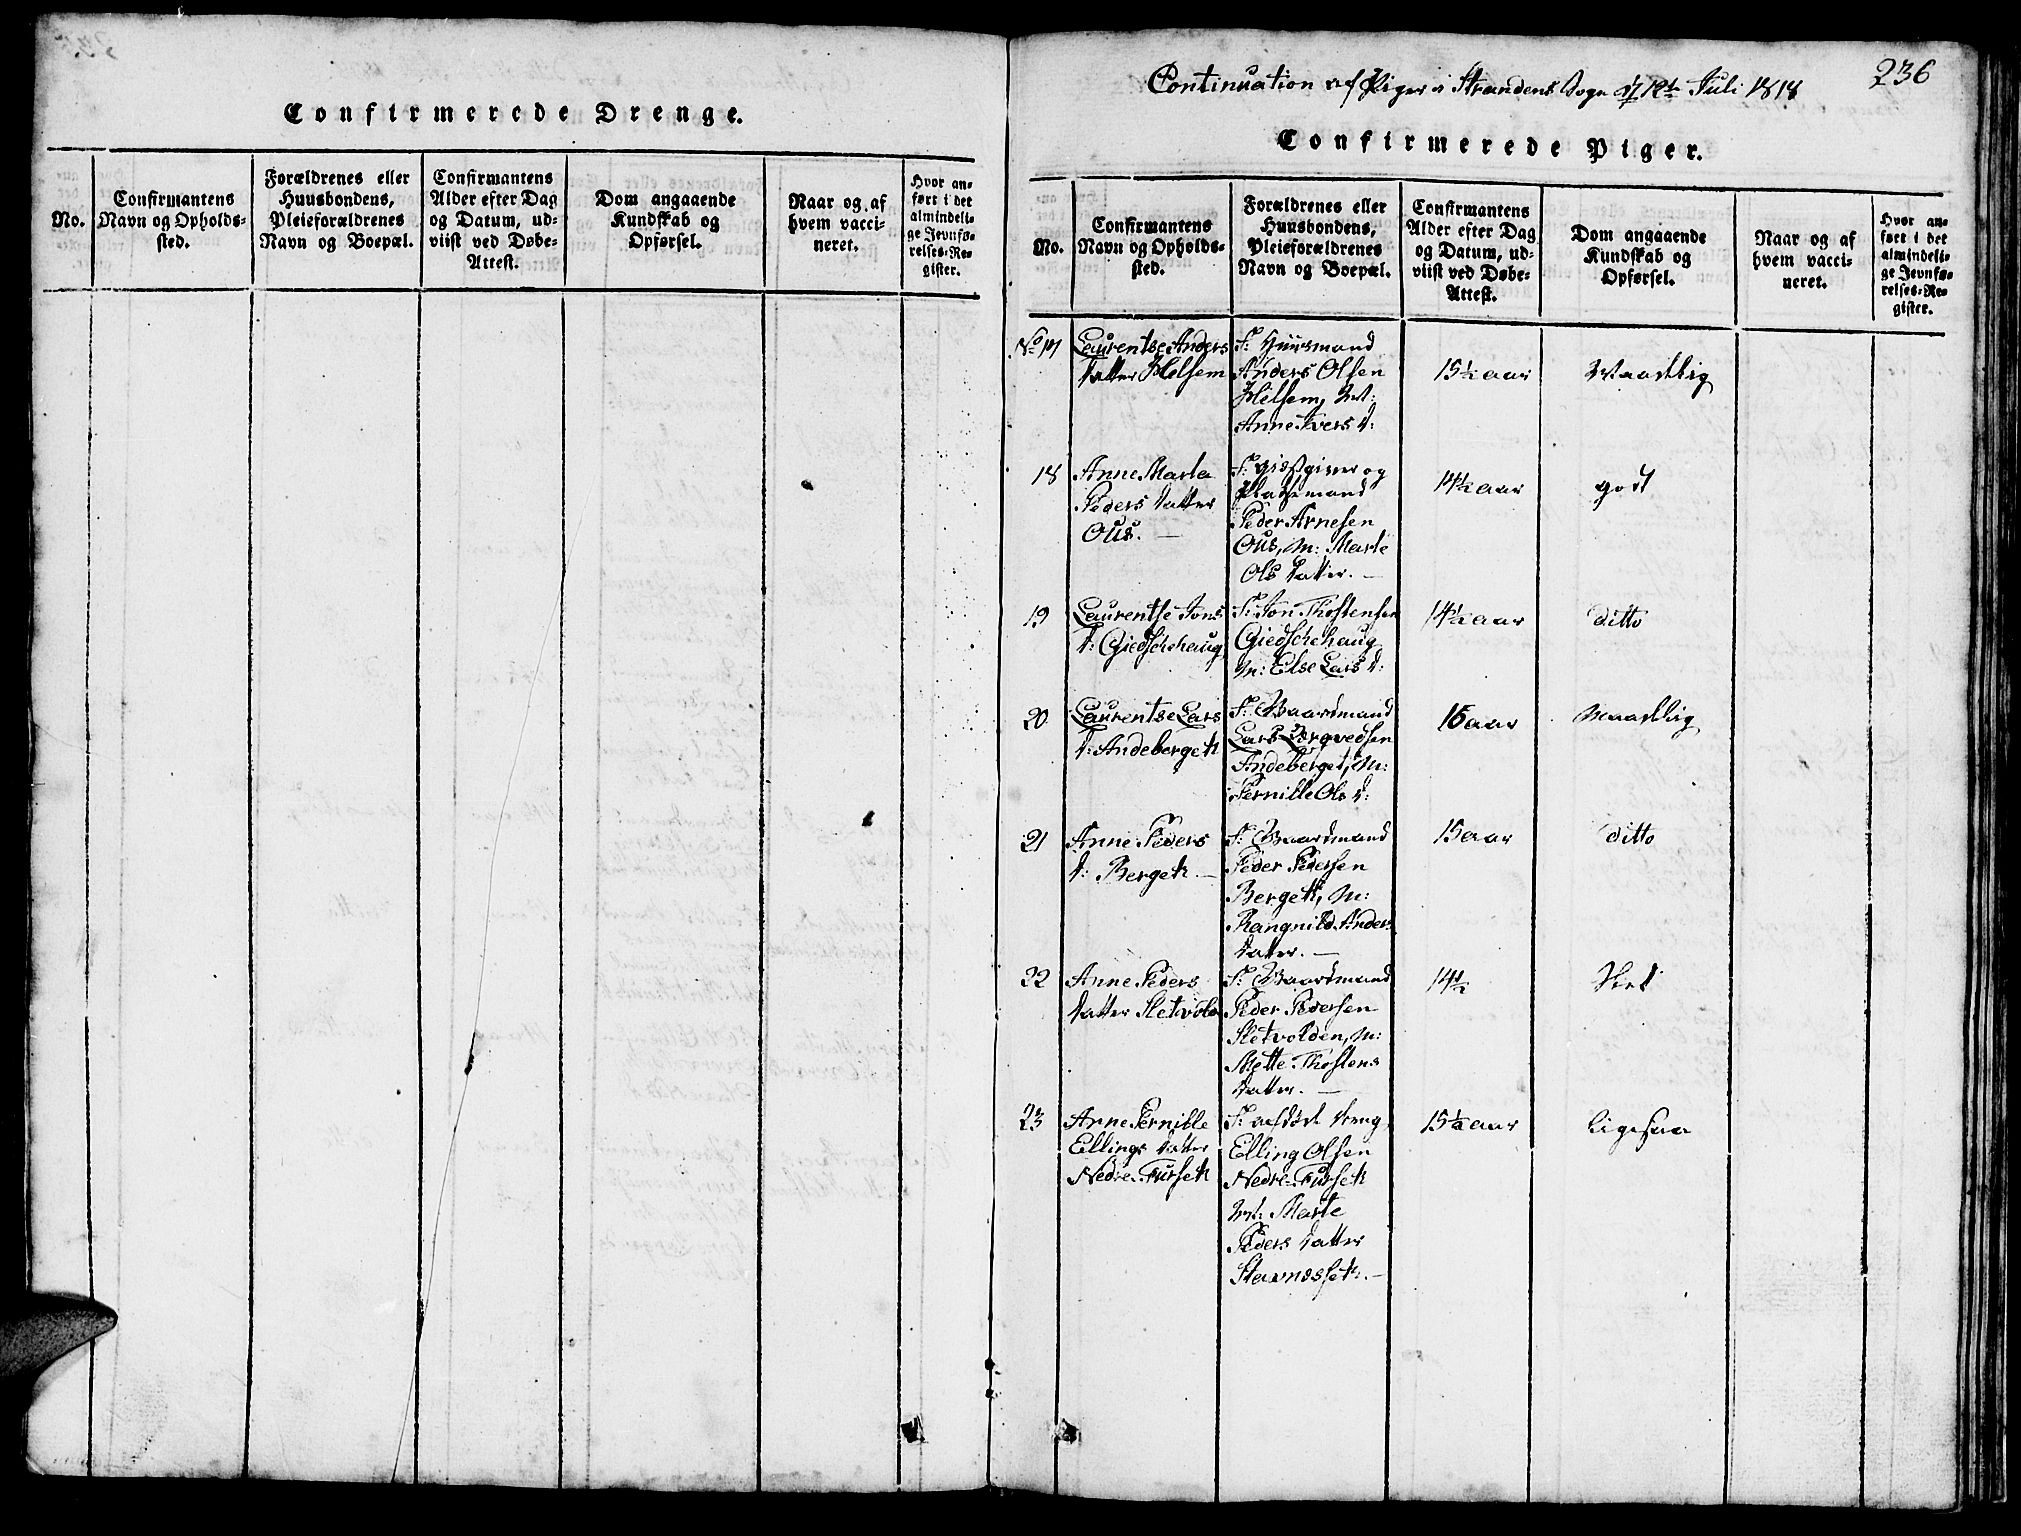 Confirmerede Drenge.
No.
Confirmantens
Navn og Opholds-
sted.
Forældrenes eller
Huusbondens,
Pleieforældrenes
Navn og Boepæl.
Confirmantens
Alder efter Dag
og Datum, ud-
viist ved Døbe-
Attest.
Dom angaaende
Kundskab og
Opførsel.
Naar og af
hvem vacci-
neret.
Hvor an-
ført i det
almindeli-
ge Jevnfø-
relses-Re-
gister.
236
Continuation af Piger i Strandens Sogn 12te Juli 1818
Confirmerede Piger.
No.
Confirmantens
Navn og Opholds-
sted.
Forældrenes eller
Huusbondens,
Pleieforældrenes
Navn og Boepæl.
Confirmantens
Alder efter Dag
og Datum, ud-
viist ved Døbe-
Attest.
Dom angaaende
Kundskab og
Opførsel.
Naar og af
hvem vacci-
neret.
Hvor an-
ført i det
almindeli-
ge Jevnfø-
relses-Re-
gister.
No 17
Laurentse Anders
datter Helsem
F: Huusmand
Anders Olsen
Hilsem, M:
Anne Ivers d:
15½ aar
Maadelig
18
Anne Marta
Peders datter
Ous. —
F: Giæstgiver og
Pladsmand
Peder Arnesen
Ous, M: Marte
Ols datter. —
14½ aar
godt
19
Laurentse Jons
d: Giedschehaug
F: Jon Thostensen
Giedschehaug
M: Else Lars d:
14½ aar
ditto
20
Laurentse Lars
d: Andebergett
F: Gaardmand
Lars
Andeberget, M:
Pernille Ols d:
16 aar
Maadelig
21
Anne Peders
d: Bergett. —
F: Gaardmand
Peder Pedersen
Bergett, M:
Rangnild Anders
datter. —
15 aar
ditto
22
Anne Peders
datter Sletvold
F: Gaardmand
Peder Pedersen
Sletvolden, M:
Mette Thostens
datter. —
14½
Slet
23
Anne Pernille
Ellings datter
Nedre-Fursett
F: afdøde
Elling Olsen
Nedre-Fursett
M: Marte
Peders datter
Stavnessett. —
15½ aar
ligesaa